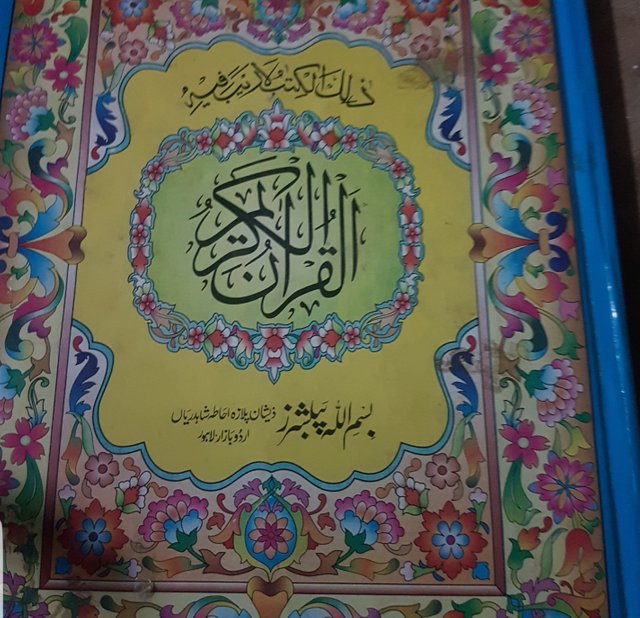 ذٰلِكَ الْكِتٰبُ لَا رَيْبَ فِيْهِ
اَلْقُرْاٰنُ الْكَرِيْمُ
بسم اللہ پبلشرز
ذیشان پلازہ احاطہ شاہدریاں
اردو بازار۔ لاہور